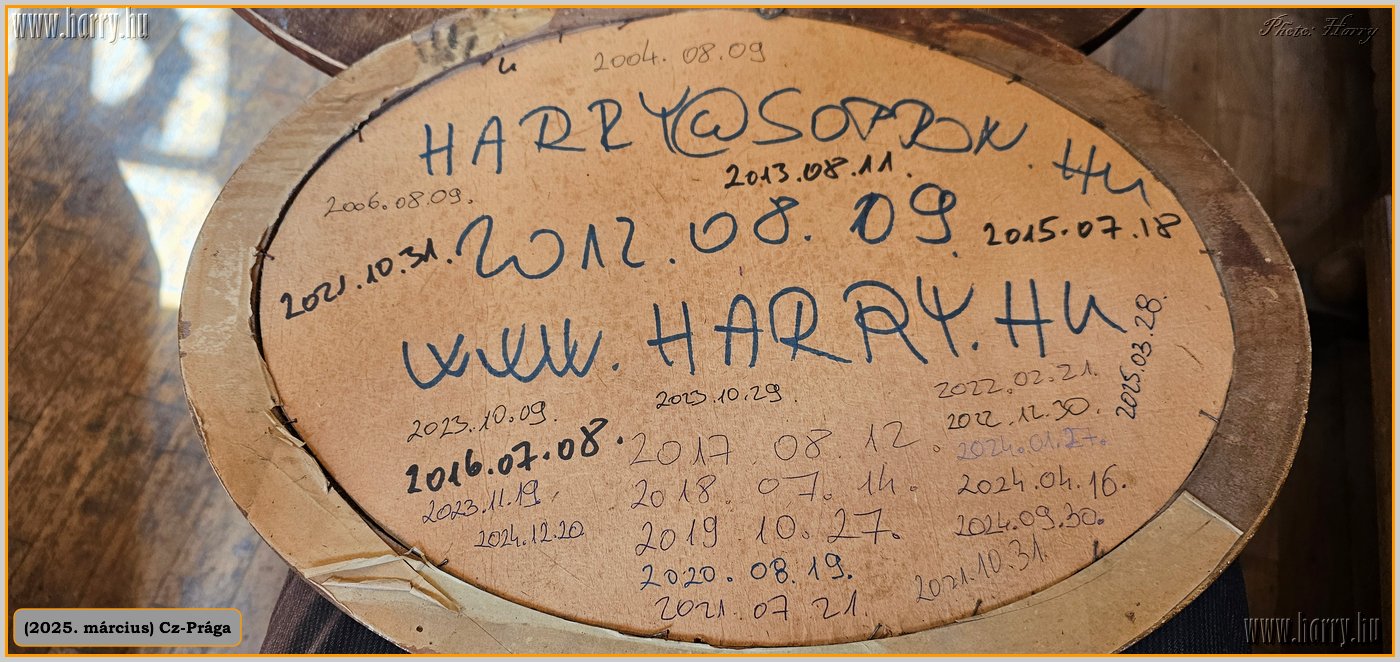 www.harry.hu
Photos Harry
2004. 08. 09.
HARRY@SOPRON.HU
2013.08.11.
2006.08.09.
2012.08.09.
2015.07.18
2021.10.31.
WWW.HARRY.HU
2025.03.28.
2023.10.09.
2023.10.29.
2022.02.21.
2022.12.30.
2016.07.08.
2017.08.12.
2024.01.27.
2023.11.19.
2018.07.14.
2024.04.16.
2024.12.20
2019.10.27.
2024.09.30.
2020.08.19.
2021.10.31.
2021.07.21.
(2025. március) Cz-Prága
www.harry.hu